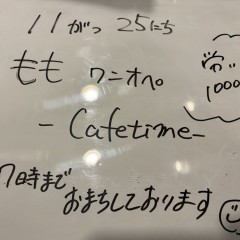 11がっ 25にち
もも ワニオペ
- Cafetime -
17時まで
おまちしております
1000